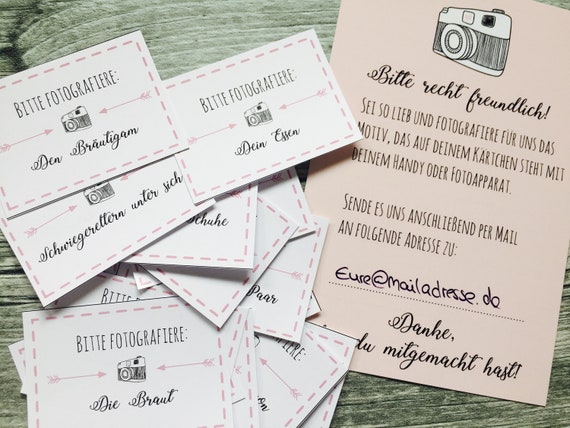 Bitte fotografiere:
Den Bräutigam
Bitte fotografiere:
Dein Essen
Schwiegereltern unter sich
Schuhe
Paar
Bitte fotografiere:
Die Braut
Bitte recht freundlich!
Sei so lieb und fotografiere für uns das
Motiv, das auf deinem Kärtchen steht mit
deinem Handy oder Fotoapparat.
Sende es uns anschließend per Mail
an folgende Adresse zu:
Eure@mailadresse.de
Danke,
du mitgemacht hast!